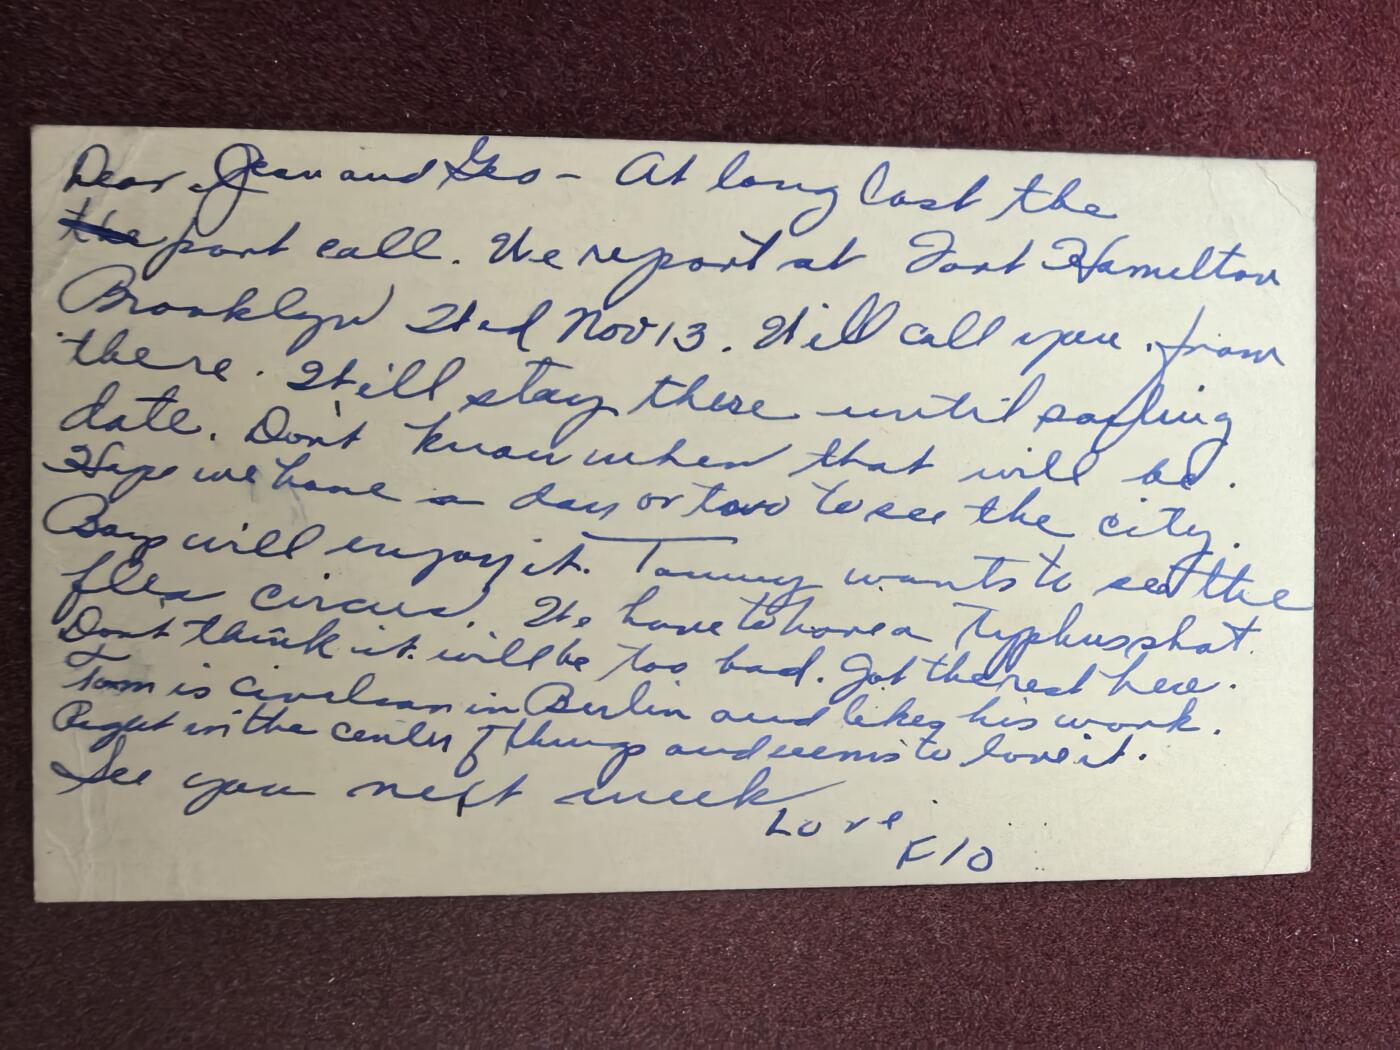 Dear Jean and Geo - At long last the
the port call. We report at Fort Hamilton
Brooklyn Wed Nov 13. Will call you from
there. Will stay there until sailing
date. Don't know when that will be.
Hope we have a day or two to see the city.
Boys will enjoy it. Tommy wants to see the
flea circus. We have to have a Typhus shot.
Dont think it will be too bad. Got the rest here.
Tom is civilian in Berlin and likes his work.
Right in the center of things and seems to love it.
See you next week
Love
Flo